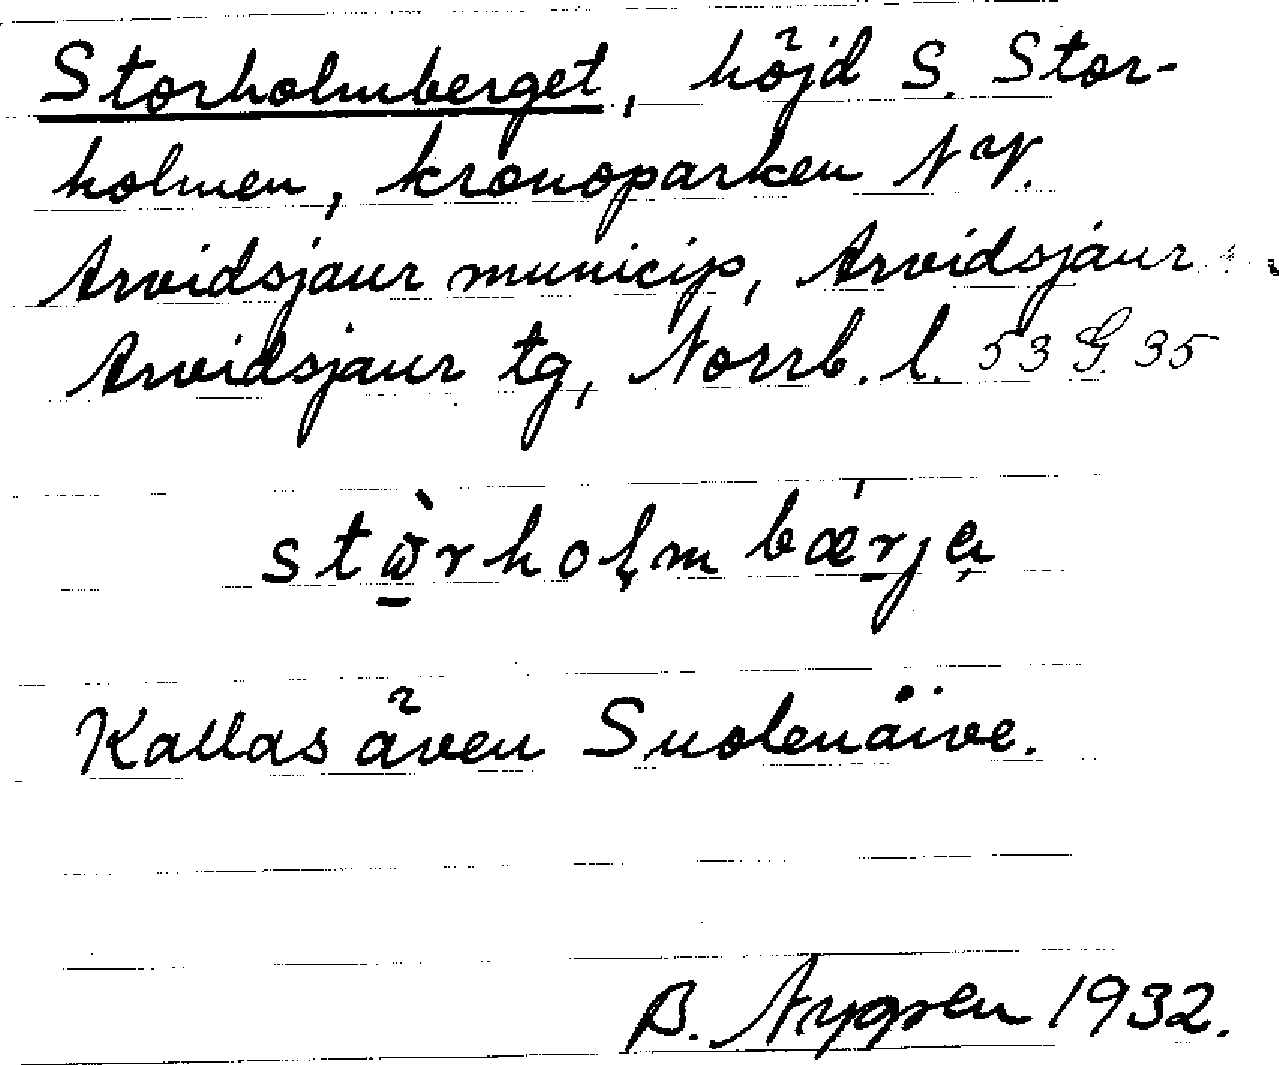 Storholmberget, höjd S. Stor-
holmen, kronoparken NV.
Arvidsjaur municip, Arvidsjaur
Arvidsjaur tg, Norrb. l. 53 G 35
Kallas även Suolenäive.
B. Nygren 1932.